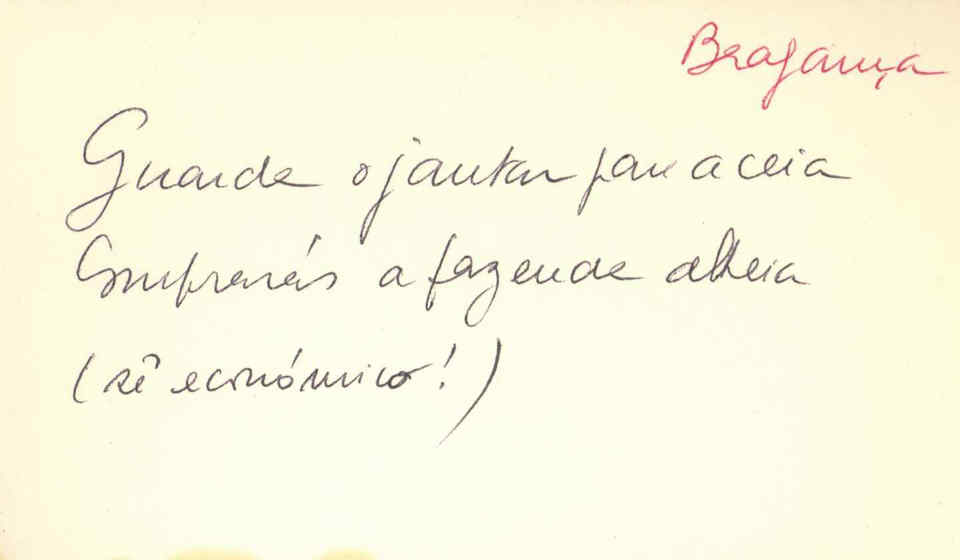 Bragança
Guarda o jantar para a ceia
Comprarás a fazenda alheia
(sê económico!)